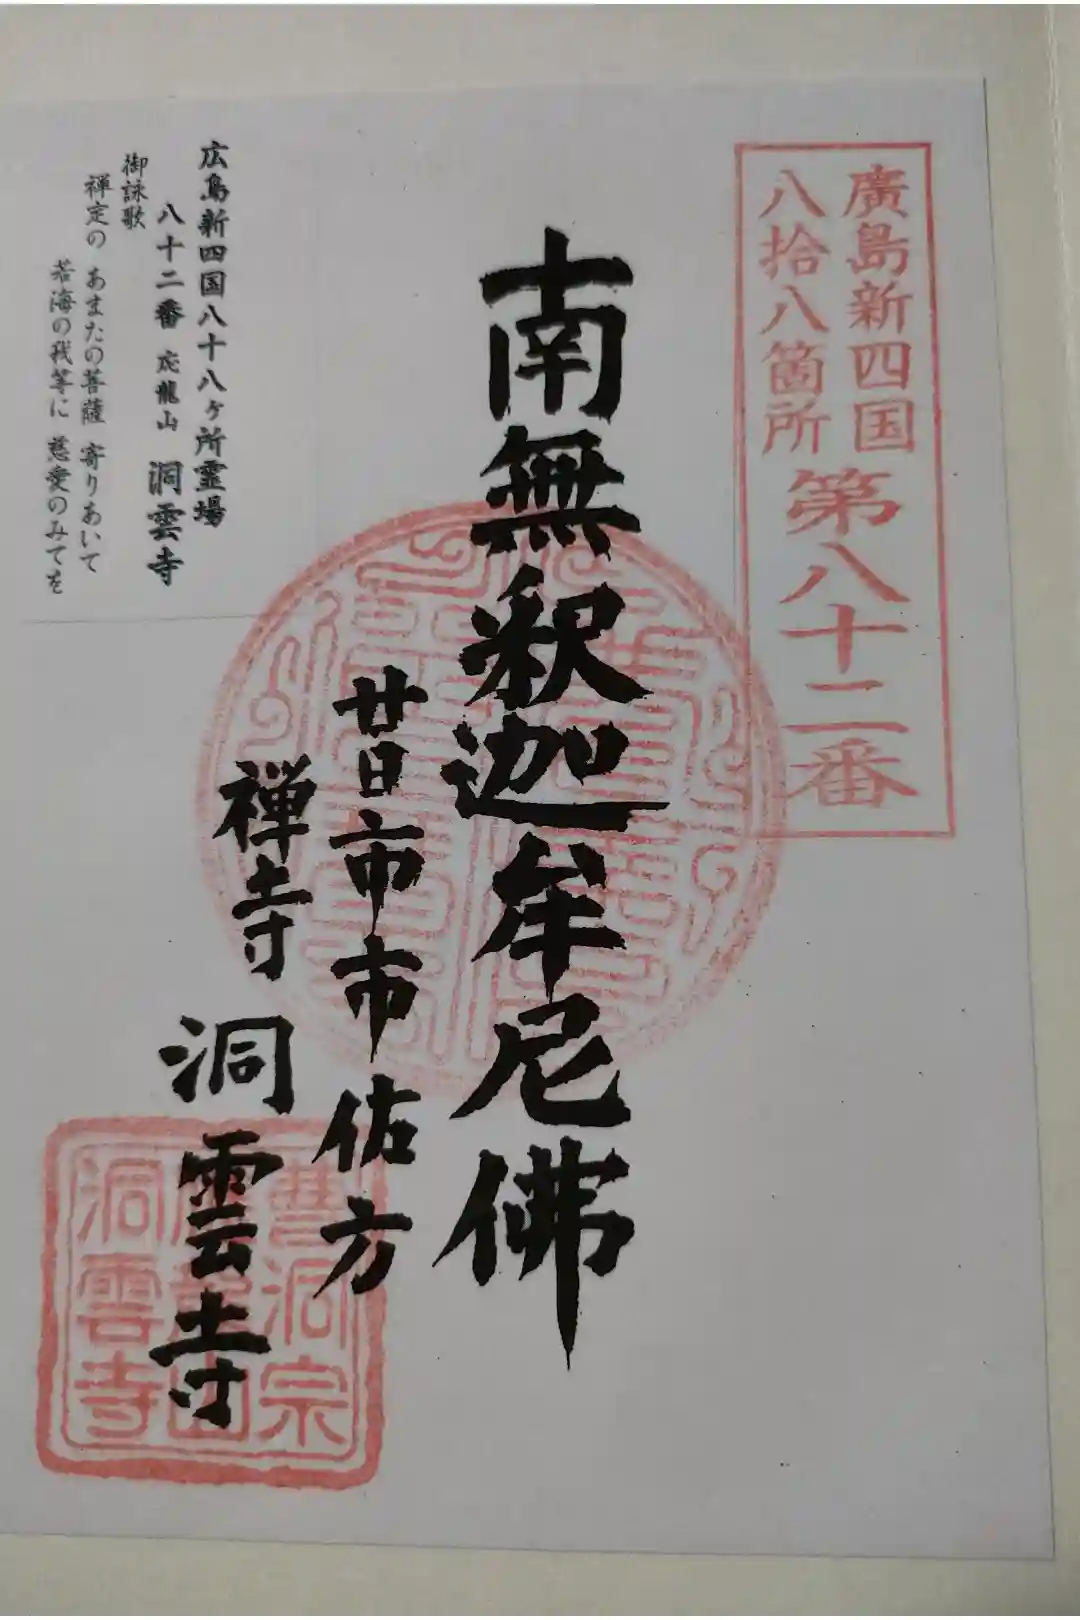 廣島新四国
八拾八箇所
第八十二番
南無釈迦牟尼佛
廿日市市佐方
禅寺 洞雲寺
広島新四国八十八ヶ所霊場
八十二番 応龍山 洞雲寺
御詠歌
禅定の あまたの菩薩 寄りあいて
苦海の我等に 慈愛のみてを
曹洞宗
応龍山
洞雲寺